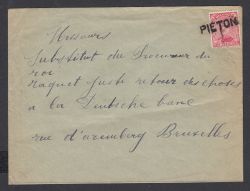 PIETON
Messieurs
Substitut du Procureur du
roi
Raquet juste retour des choses
a la Deutsche banc
rue d'aremberg Bruxelles